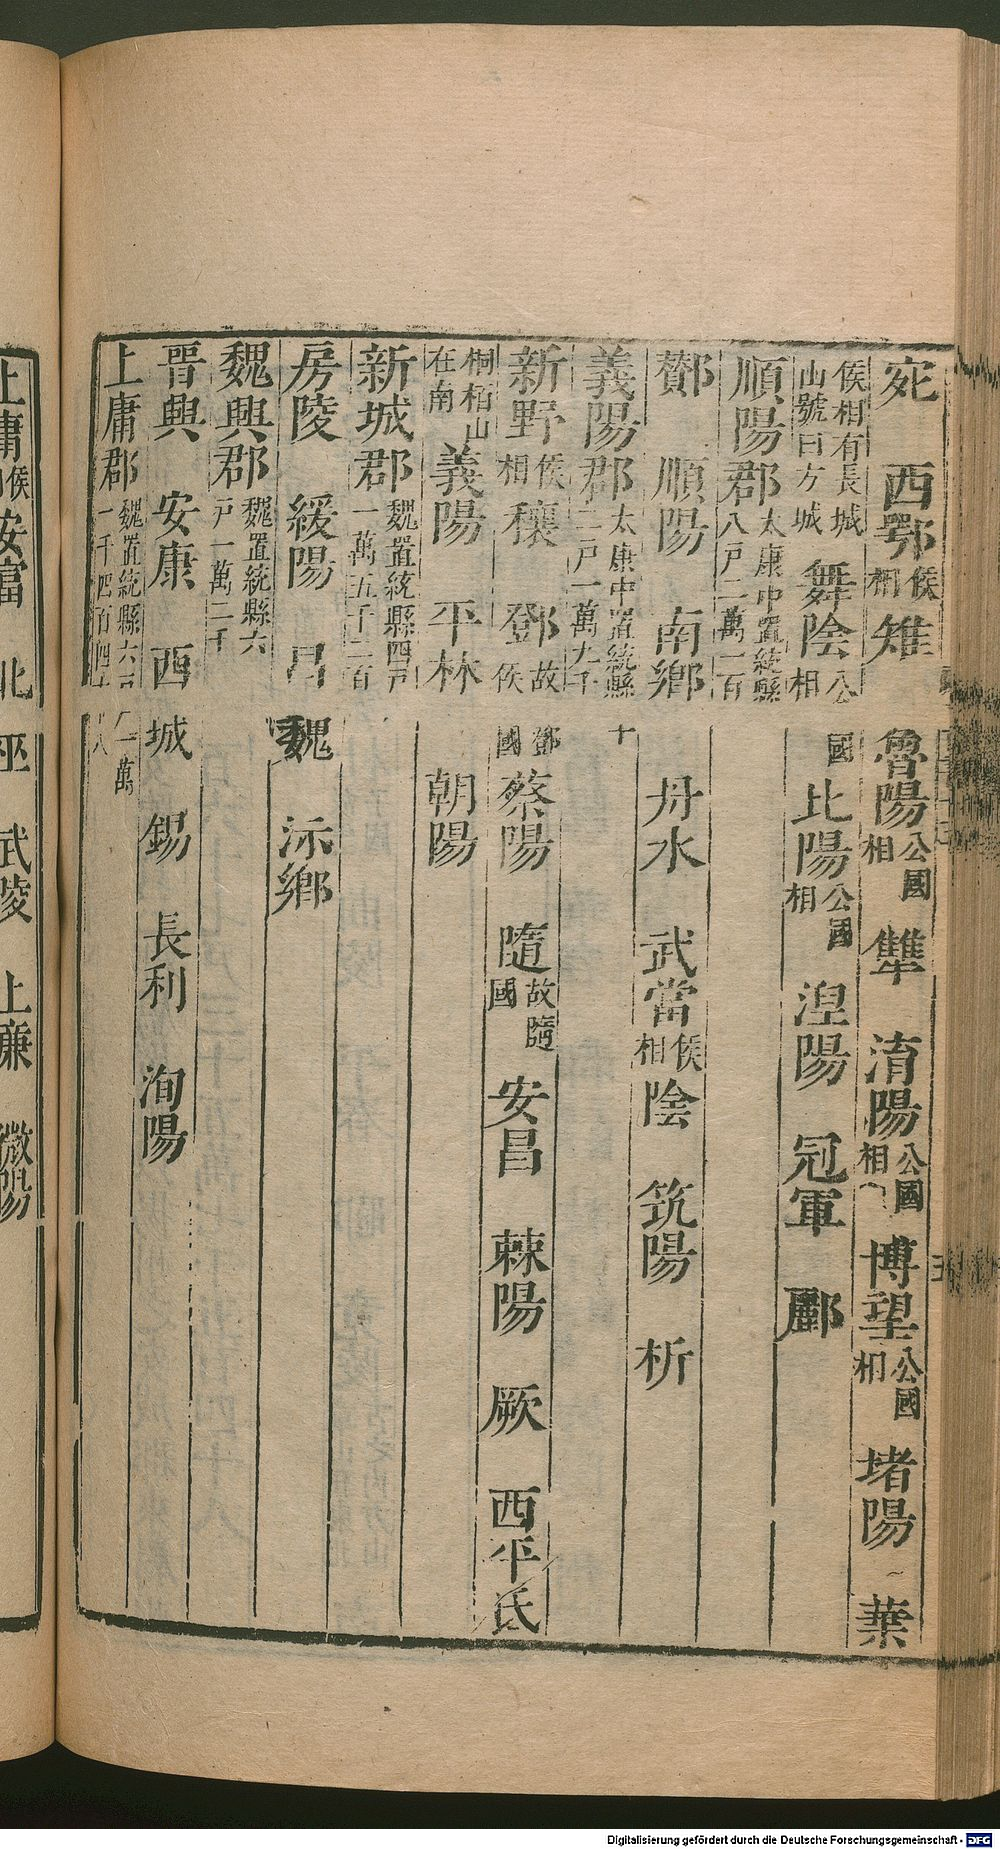 宛 西鄂侯相 雉 魯陽公國相 犨 淯陽公國相 博望公國相 堵陽 葉
侯相有長城山號曰方城 舞陰公國相 比陽公國相 涅陽 冠軍 酈
順陽郡太康中置統縣八戶二萬一百
酇 順陽 南鄉 丹水 武當侯相 陰 筑陽 析
義陽郡太康中置統縣十二戶一萬九千
新野侯相 穰 鄧故鄧侯國 蔡陽 隨故隨國 安昌 棘陽 厥 西平氏
桐柏山在南 義陽 平林 朝陽
新城郡魏置統縣四戶一萬五千二百
房陵 緩陽 昌魏 沶鄉
魏興郡魏置統縣六戶一萬二千
晉興 安康 西城 錫 長利 洵陽
上庸郡魏置統縣六戶一萬一千四百四十八
上庸侯相 安富 北巫 武陵 上廉 微陽
Digitalisierung gefördert durch die Deutsche Forschungsgemeinschaft - DFG